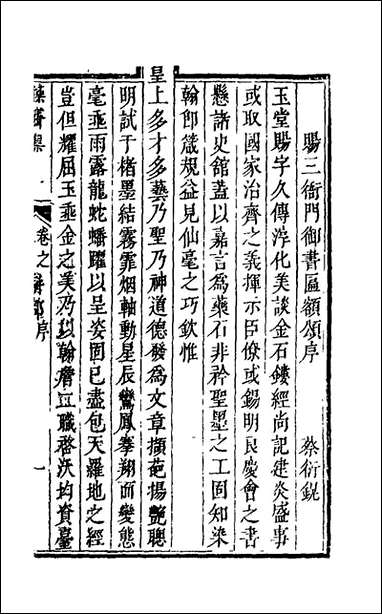 賜三衙門御書匾額頌序 蔡衍鎤
玉堂賜字久傳淳化美談金石鏤經尚記建炎盛事
或取國家治齊之義揮示臣僚或錫明民慶會之書
懸諸史舘蓋以嘉言為藥石非矜聖墨之工固知染
翰即箴規益見仙毫之巧欽惟
皇上多才多藝乃聖乃神道德發為文章擷葩揚艷聰
明試于楮墨結霧霏烟軸動星辰鸞鳳拳翔而變態
毫垂雨露龍蛇蟠躍以呈姿固已盡包天羅地之經
豈但耀屈玉垂金之美乃以翰詹江職啓沃均資臺
卷之 序 一